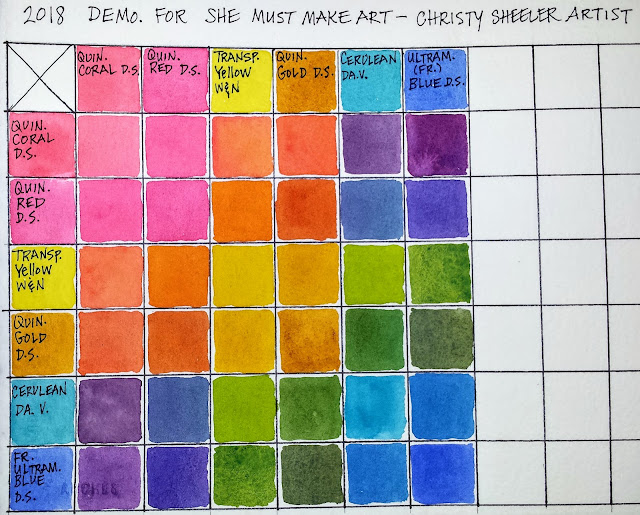 2018 DEMO. FOR SHE MUST MAKE ART – CHRISTY SHEELER ARTIST
QUIN.
CORAL D.S.
QUIN.
RED D.S.
TRANSP.
Yellow
W&N
QUIN.
GOLD D.S.
CERULEAN
DA.V.
ULTRAM.
(FR.)
BLUE D.S.
QUIN.
CORAL
D.S.
QUIN.
RED
D.S.
TRANSP.
Yellow
W&N
QUIN.
GOLD
D.S.
CERULEAN
DA. V.
FR.
ULTRAM.
BLUE
D.S.
ARCHES